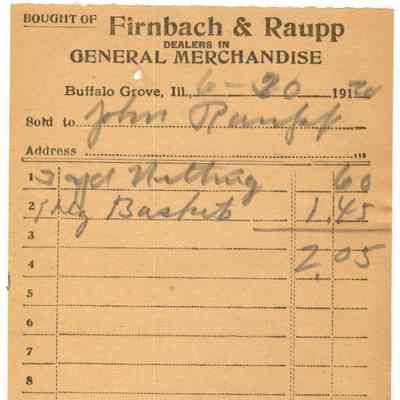 BOUGHT OF Firnbach & Raupp
DEALERS IN
GENERAL MERCHANDISE
Buffalo Grove, Ill., 6-20 191
Sold to John Raupp
Address
1 yd Netting 60
2 Basket 1.45
3
4 2.05
5
6
7
8